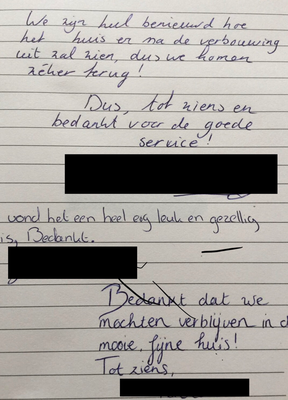 We zijn heel benieuwd hoe
het huis er na de verbouwing
uit zal zien, dus we komen
zéker terug!
Dus, tot ziens en
bedankt voor de goede
service!
vond het een heel erg leuk en gezellig
is, Bedankt.
Bedankt dat we
mochten verblijven in d
mooie, fijne huis!
Tot ziens,